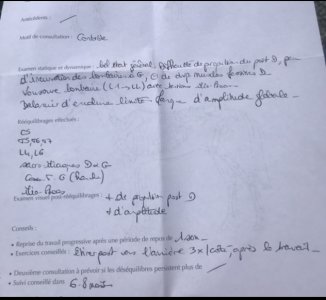 Antécédents : /
Motif de consultation : Contrôle
Examen statique et dynamique : bel état général, difficulté de propulsion du post D, peu
d'incurvation des lombaires à G, ⊖ de dvp muscles fessiers D
Voussure lombaire (L1 → L4) avec tension
Balancier d'encolure limité = manque d'amplitude globale -
Rééquilibrages effectués :
C5
T5, T6, T7
L4, L6
sacro iliaques D + G
G (haut)
Ilio Psoas
Examen visuel post-rééquilibrages : + de propulsion post D
+ d'amplitude
Conseils :
• Reprise du travail progressive après une période de repos de
• Exercices conseillés : étirer post vers l'arrière 3x/côté, après le travail -
• Deuxième consultation à prévoir si les déséquilibres persistent plus de /
• Suivi conseillé dans 6-8 mois